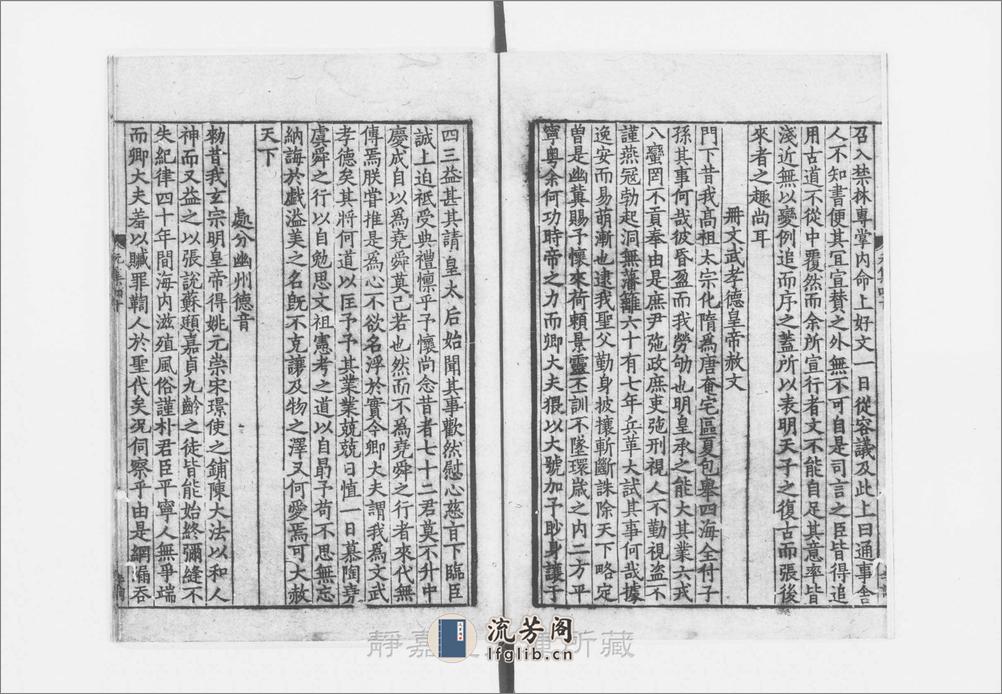 召入禁林專掌内命上好文一日從容議及此上曰通事舍
人不知書便其宜宣賛之外無不可自是司言之臣皆得追
用古道不從中覆然而余所宣行者文不能自足其意率皆
淺近無以變例追而序之蓋所以表明天子之復古而張後
來者之趣尚耳
冊文武孝德皇帝赦文
門下昔我髙祖太宗化隋爲唐奄宅區夏包舉四海全付子
孫其事何哉彼昏盈而我勞劬也明皇承之能大其業六戎
八蠻罔不貢奉由是庶尹弛政庶吏弛刑視人不勤視盗不
謹燕冦勃起洞無藩籬六十有七年兵革大試其事何哉據
逸安而易萌漸也逮我聖父勤身披攘斬斷誅除天下略定
曽是幽冀賜予懷來荷頼景靈丕訓不墜環歳之内二方平
寧粤余何功時帝之力而卿大夫猥以大號加予眇身讓于
四三益甚其請皇太后始聞其事歡然慰心慈旨下臨臣
誠上迫祗受典禮懍乎予懷尚念昔者七十二君莫不升中
慶成自以爲堯舜莫己若也然而不爲堯舜之行者來代無
傳焉朕嘗推是爲心不欲名浮於實今卿大夫謂我爲文武
孝德矣其將何道以匡予予其業業兢兢日慎一日慕陶堯
虞舜之行以自勉思文祖憲考之道以自勗予苟不思無忘
納誨於戲溢美之名旣不克讓及物之澤又何愛焉可大赦
天下
處分幽州德音
勑昔我玄宗明皇帝得姚元崇宋璟使之鋪陳大法以和人
神而又益之以張説蘇頲嘉貞九齡之徒皆能始終彌縫不
失紀律四十年間海内滋殖風俗謹朴君臣平寧人無爭端
而卿大夫羞以贓罪鞫人於聖代矣況伺察乎由是網漏吞
流芳阁
lfglib.cn
靜嘉 所藏